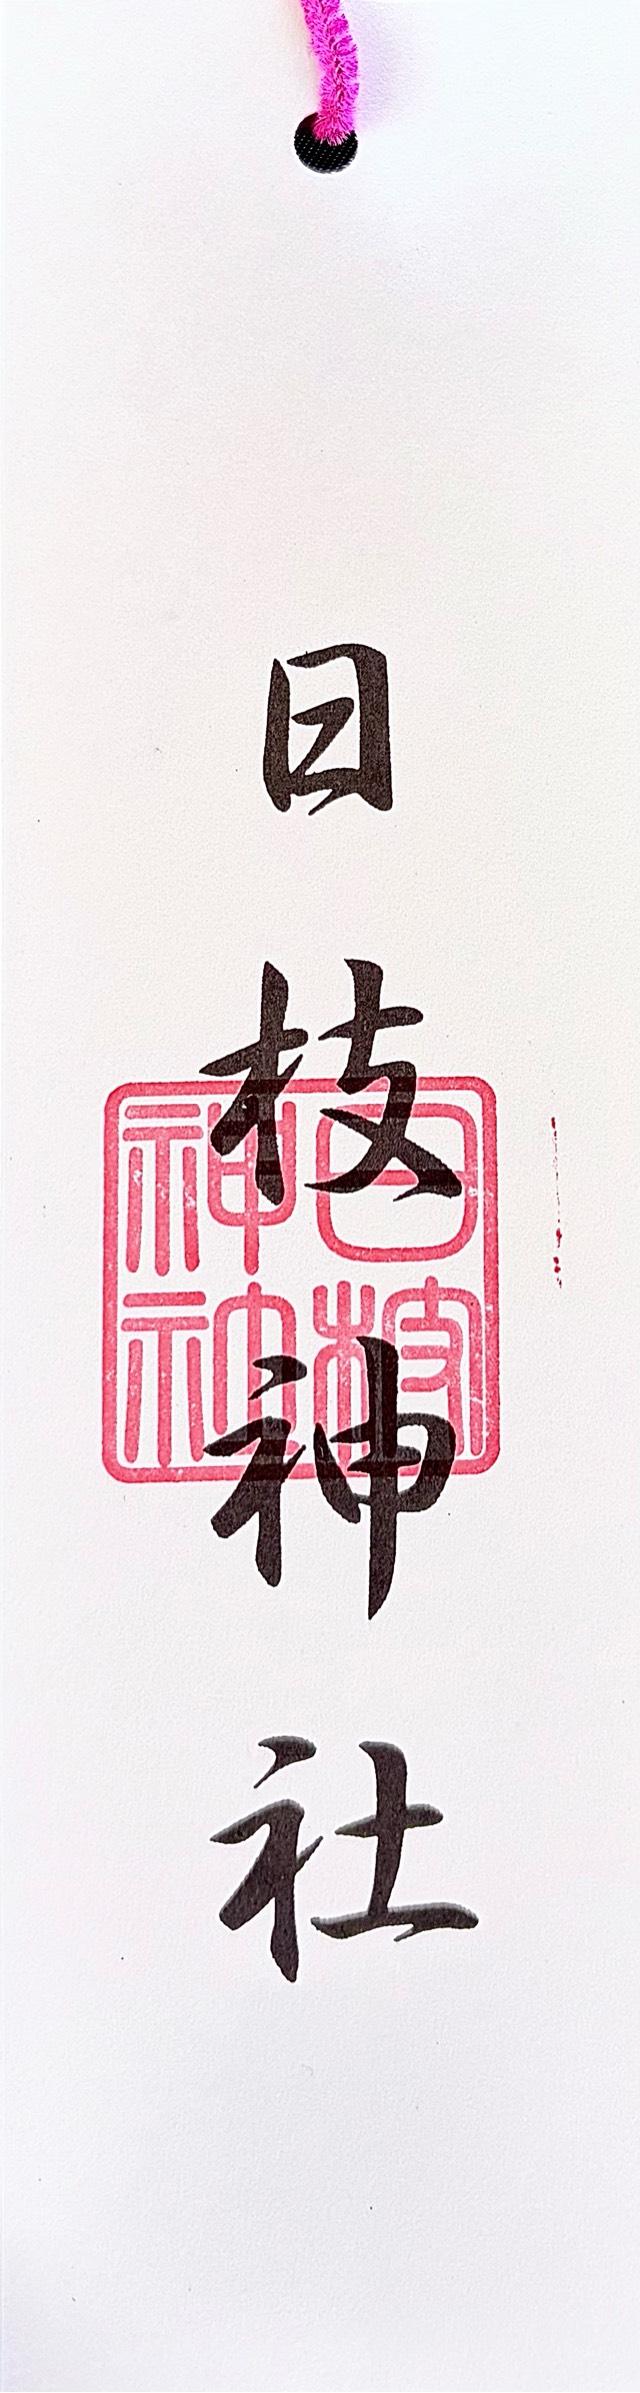 日枝神社
日枝
神